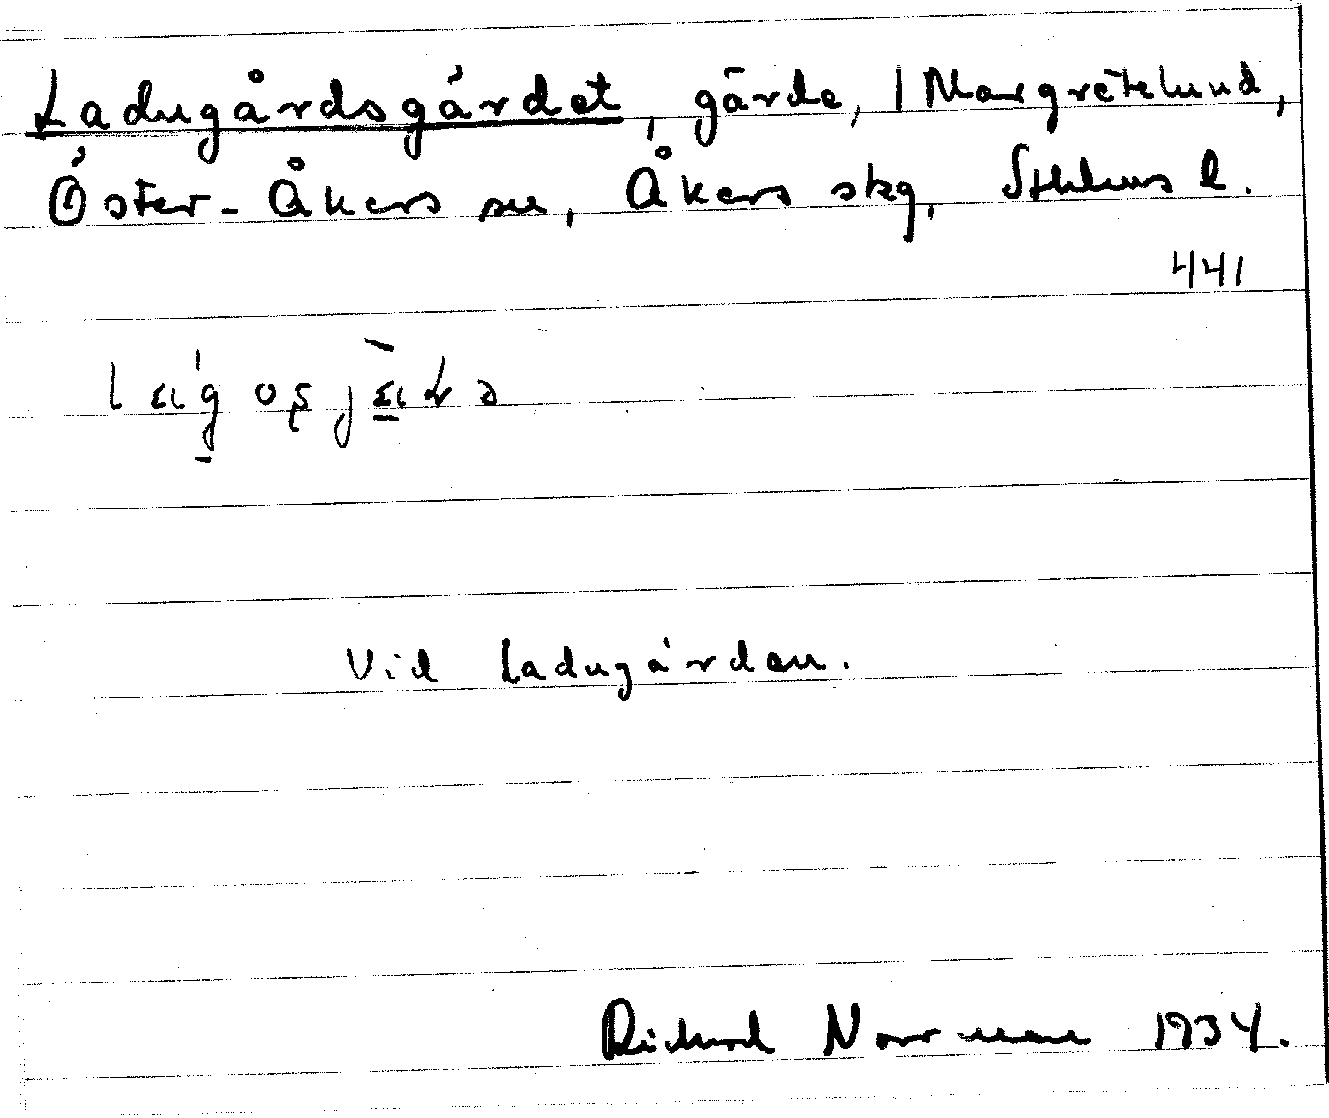 Ladugårdsgärdet, gärde, 1 Margretelund,
Öster-Åkers sn, Åkers skg, Sthlms l.
441
Vid ladugården.
Richard Norrman 1934.